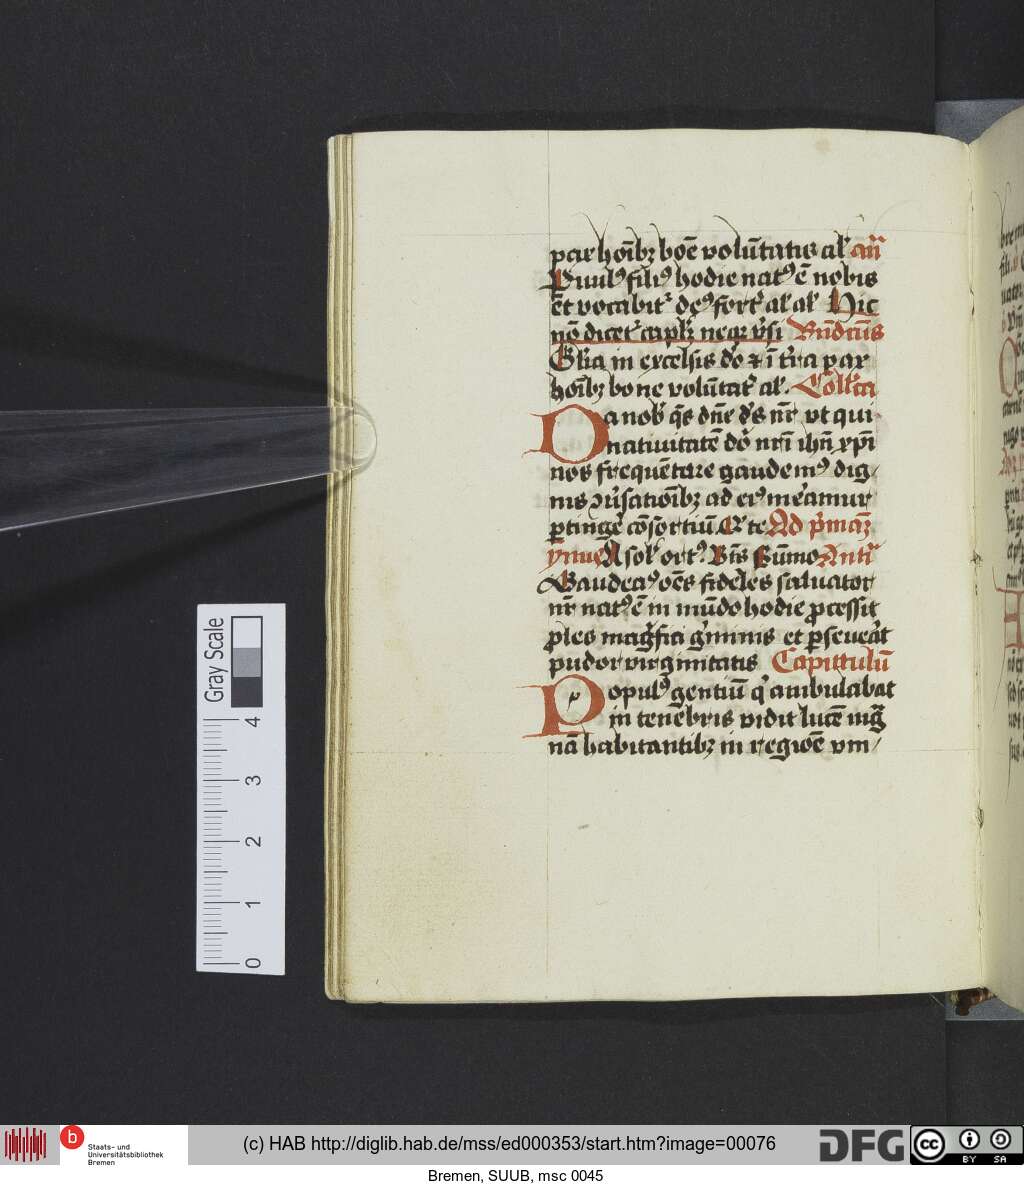 pax hoı̄bꝫ boē volūtatis al' an̄
Puulꝰ filiꝰ hodie natꝰ ē nobis
Et vocabitr deꝰ fort' al' al' Hic
nō dicet' capl'ꝫ neqꝫ v'si Bn̄dictūs
Glīa in excelsis dō ⁊ ī t'ra pax
hoı̄bꝫ bone volūtat' al'. Coll'cta
Da nob' q̄s dn̄e d's nr̄ vt qui
natiuitatē dō nr̄i ihū xp̄i
nos frequētare gaudemꝰ dig
nis ꝯu'sationı̄bꝫ ad eiꝰ me'amur
ꝑtinge' cōsortiū. Q' te Ad p'maꝫ
ymnꝰ A sol' ortꝰ. Bt̄s Sūmo Anti'
Gaudeaꝰ oēs fideles saluator
nr̄ natꝰ ē in mūdo hodie ꝓcessit
ꝓles mag'fici g'minis et ꝑseue'at
pudor virginitatis Capittulū
Popul' gentiū q' ambulabat
in tenebris vidit lucē mag̃
nā habitantibꝫ in regiōe vm
Gray Scale
0 1 2 3 4
b Staats- und
Universitätsbibliothek
Bremen
(c) HAB http://diglib.hab.de/mss/ed000353/start.htm?image=00076
DFG
cc BY SA
Bremen, SUUB, msc 0045